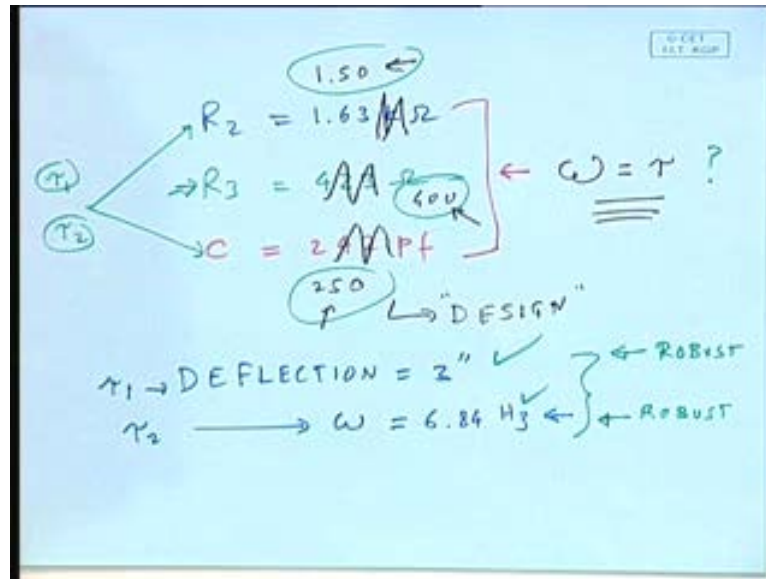 © CET
I.I.T. KGP
1.50 ←
R2 = 1.63 Ω
τ1 → R3 = 4 Ω 400 ← ω = τ ?
τ2 C = 2 pf
250 ↳ "DESIGN"
τ1 → DEFLECTION = 3" ✓ ← ROBUST
τ2 → ω = 6.84 Hz ✓ ← ← ROBUST